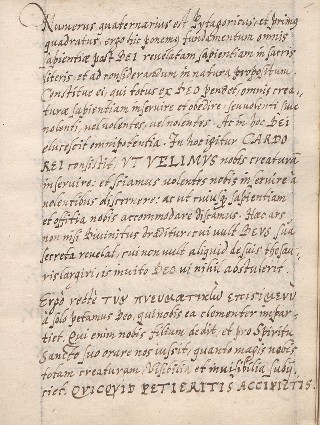 Numerus quaternarius est Pytagoricus, et primus
quadratus, ergo hic ponemus fundamentum omnis
sapientiae post DEI revelatam sapientiam in sacris
literis, et ad considerandum in natura propositum.
Constitue ei, qui totus ex DEO pendet, omnis crea¬
turae sapientiam inservire et obedire, seu volenti seu
nolenti, vel volentes, vel nolentes. Ac in hoc DEI
elucescit omnipotentia. In hoc igitur CARDO
REI consistit, UT VELIMUS nobis creaturam
inservire: et sciamus volentes nobis inservire à
nolentibus discernere: ac ut cuiusque sapientiam
et officia nobis accommodare discamus. Haec ars
non nisi Divinitus traditur: cui vult DEUS sua
secreta revelat, cui non vult aliquid de suis thesau¬
ris largiri, is invito DEO vi nihil
Ergo recte
à solo petamus DEO, qui nobis ea clementer imper¬
tiet. Qui enim nobis filium dedit, et pro Spiritu
Sancto suo orare nos iussit, quanto magis nobis
totam creaturam, visibilia et invisibilia subij¬
ciet. QUICQUID PETIERITIS ACCIPIETIS.